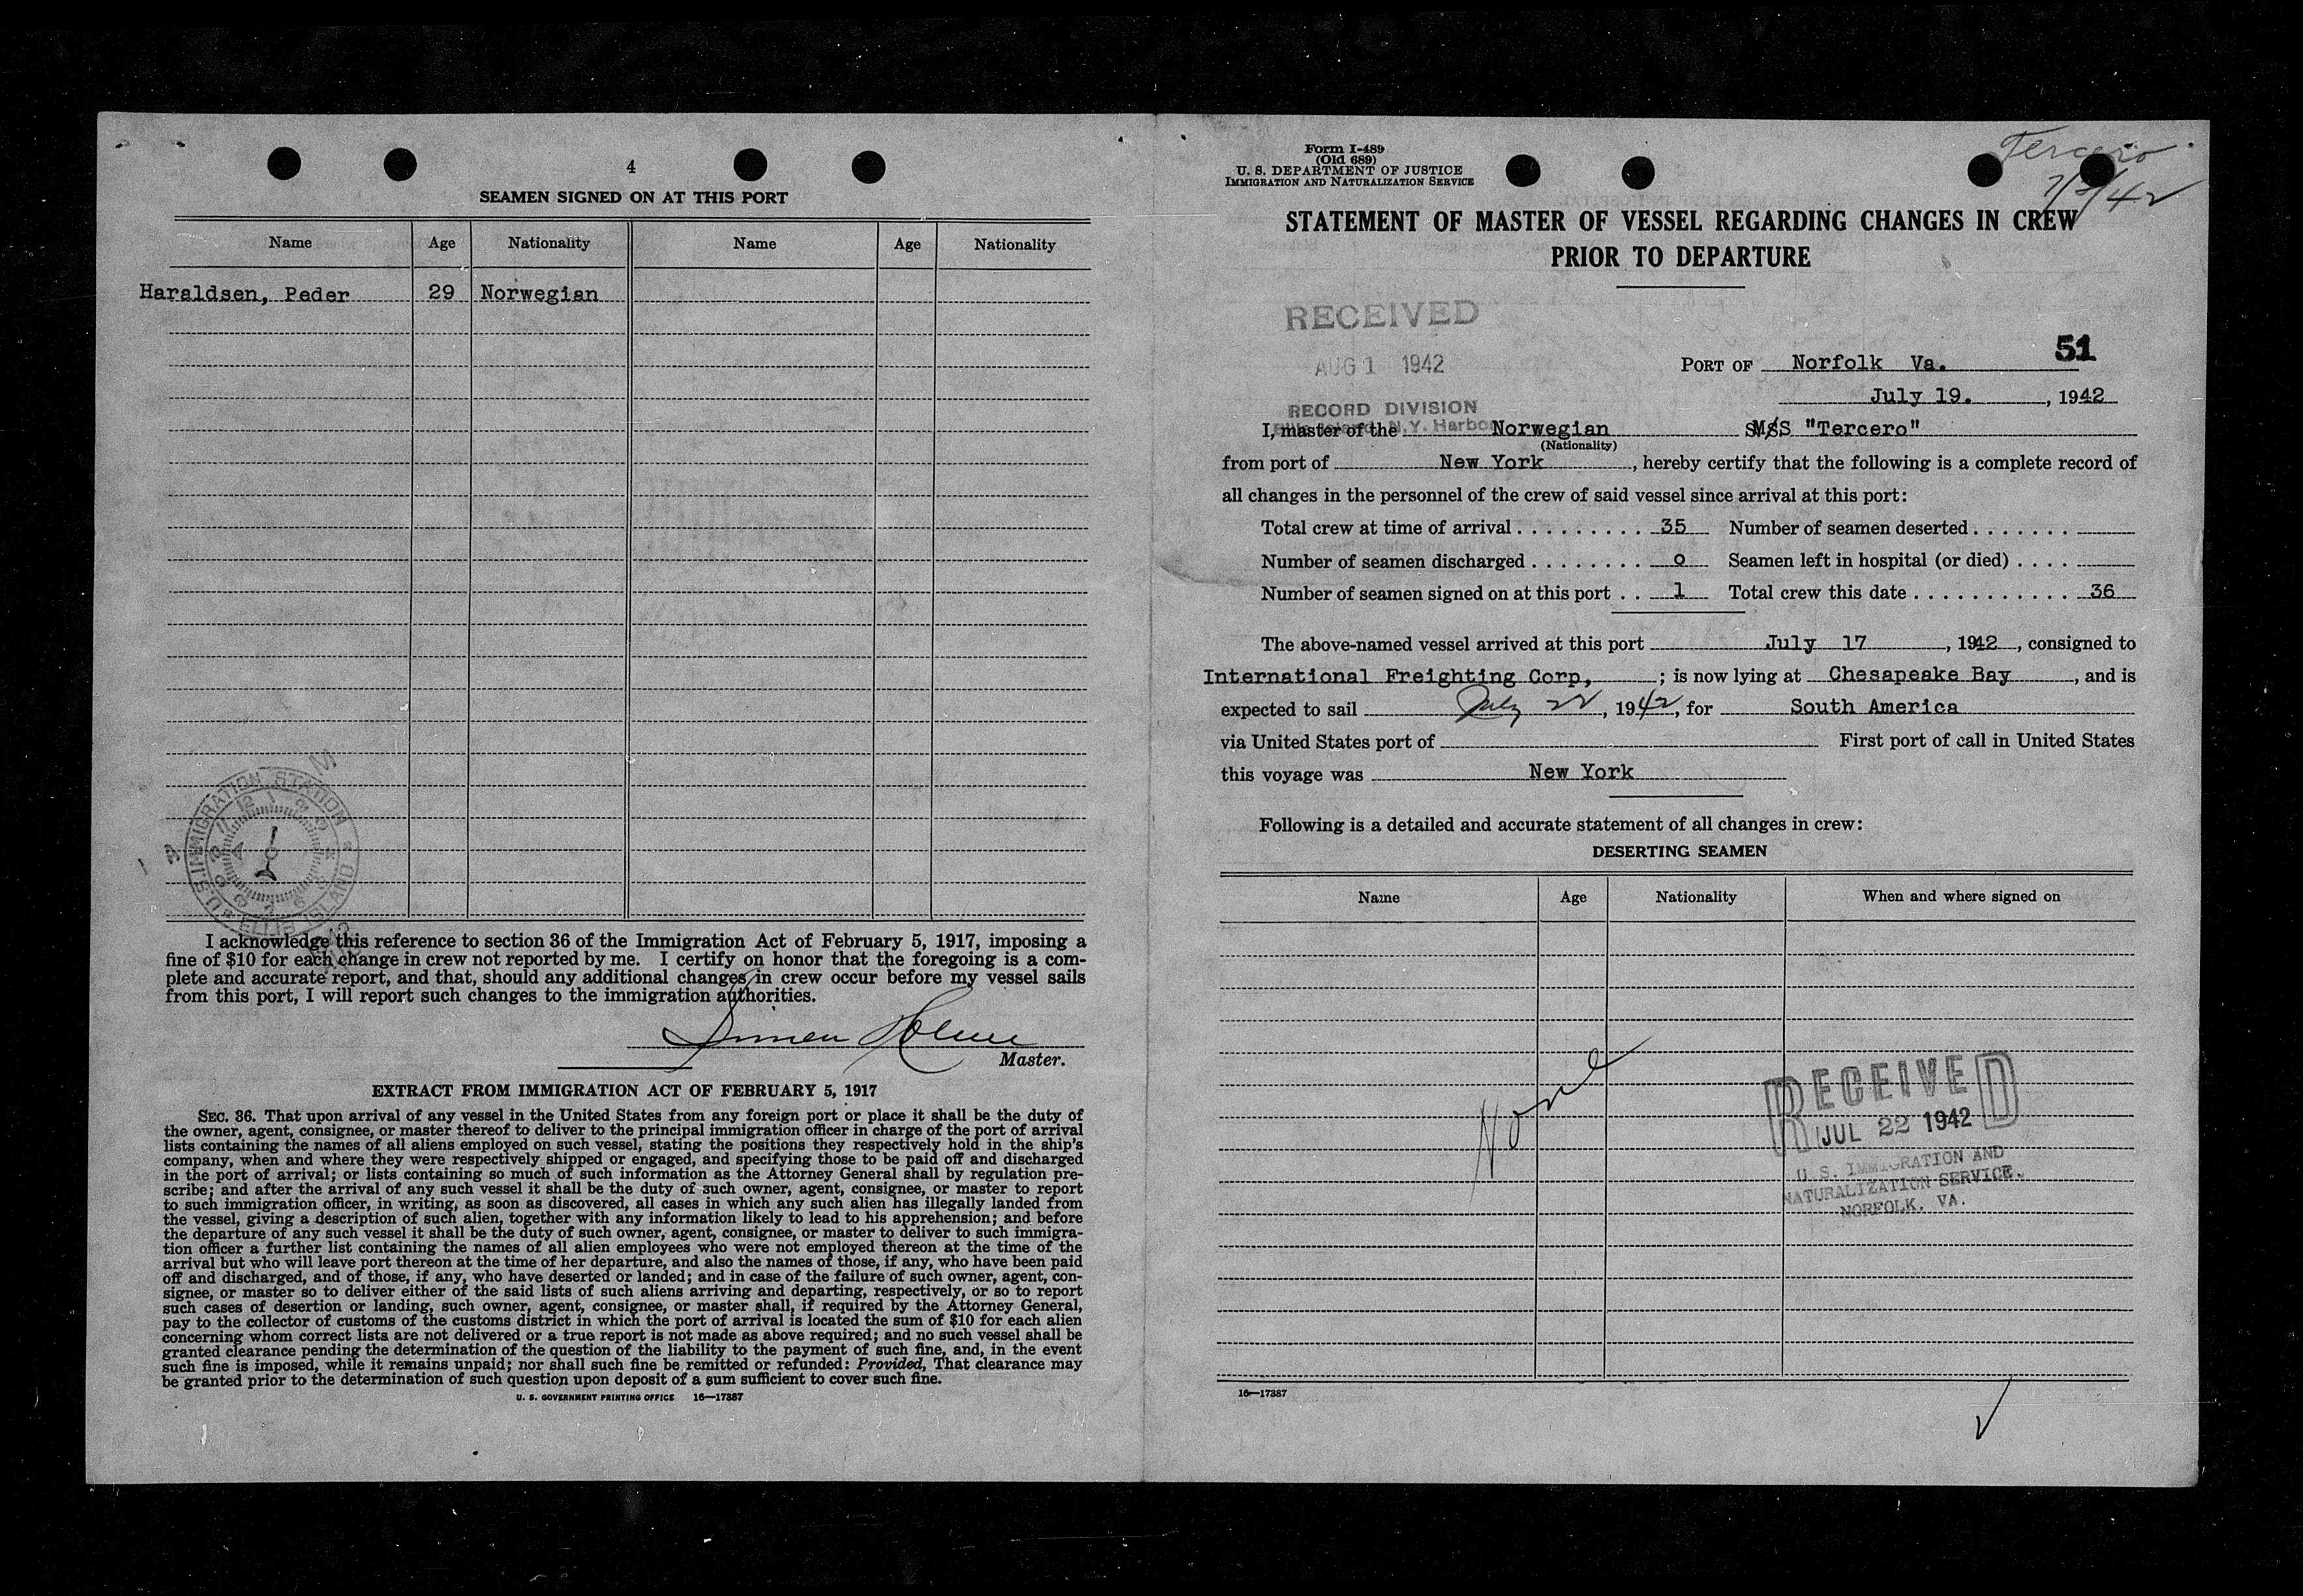 4
SEAMEN SIGNED ON AT THIS PORT
Name Age Nationality Name Age Nationality
Haraldsen, Peder 29 Norwegian
U.S. IMMIGRATION STATION
ELLIS ISLAND
I acknowledge this reference to section 36 of the Immigration Act of February 5, 1917, imposing a
fine of $10 for each change in crew not reported by me. I certify on honor that the foregoing is a com-
plete and accurate report, and that, should any additional changes in crew occur before my vessel sails
from this port, I will report such changes to the immigration authorities.
Master.
EXTRACT FROM IMMIGRATION ACT OF FEBRUARY 5, 1917
SEC. 36. That upon arrival of any vessel in the United States from any foreign port or place it shall be the duty of
the owner, agent, consignee, or master thereof to deliver to the principal immigration officer in charge of the port of arrival
lists containing the names of all aliens employed on such vessel, stating the positions they respectively hold in the ship's
company, when and where they were respectively shipped or engaged, and specifying those to be paid off and discharged
in the port of arrival; or lists containing so much of such information as the Attorney General shall by regulation pre-
scribe; and after the arrival of any such vessel it shall be the duty of such owner, agent, consignee, or master to report
to such immigration officer, in writing, as soon as discovered, all cases in which any such alien has illegally landed from
the vessel, giving a description of such alien, together with any information likely to lead to his apprehension; and before
the departure of any such vessel it shall be the duty of such owner, agent, consignee, or master to deliver to such immigra-
tion officer a further list containing the names of all alien employees who were not employed thereon at the time of the
arrival but who will leave port thereon at the time of her departure, and also the names of those, if any, who have been paid
off and discharged, and of those, if any, who have deserted or landed; and in case of the failure of such owner, agent, con-
signee, or master so to deliver either of the said lists of such aliens arriving and departing, respectively, or so to report
such cases of desertion or landing, such owner, agent, consignee, or master shall, if required by the Attorney General,
pay to the collector of customs of the customs district in which the port of arrival is located the sum of $10 for each alien
concerning whom correct lists are not delivered or a true report is not made as above required; and no such vessel shall be
granted clearance pending the determination of the question of the liability to the payment of such fine, and, in the event
such fine is imposed, while it remains unpaid; nor shall such fine be remitted or refunded: Provided, That clearance may
be granted prior to the determination of such question upon deposit of a sum sufficient to cover such fine.
U. S. GOVERNMENT PRINTING OFFICE 16—17387
Form I-489
(Old 689)
U. S. DEPARTMENT OF JUSTICE
IMMIGRATION AND NATURALIZATION SERVICE
Tercero
STATEMENT OF MASTER OF VESSEL REGARDING CHANGES IN CREW
PRIOR TO DEPARTURE
RECEIVED
AUG 1 1942
RECORD DIVISION
Ellis Island, N.Y. Harbor
51
PORT OF Norfolk Va.
July 19. , 1942
I, master of the Norwegian M/S "Tercero"
(Nationality)
from port of New York , hereby certify that the following is a complete record of
all changes in the personnel of the crew of said vessel since arrival at this port:
Total crew at time of arrival . . . . . . . . . 35 Number of seamen deserted . . . . . . .
Number of seamen discharged . . . . . . . . 0 Seamen left in hospital (or died) . . . .
Number of seamen signed on at this port . . 1 Total crew this date . . . . . . . . . . . . 36
The above-named vessel arrived at this port July 17 , 1942 , consigned to
International Freighting Corp, ; is now lying at Chesapeake Bay , and is
expected to sail July 22 , 1942, for South America
via United States port of First port of call in United States
this voyage was New York
Following is a detailed and accurate statement of all changes in crew:
DESERTING SEAMEN
Name Age Nationality When and where signed on
None
RECEIVED
JUL 22 1942
U. S. IMMIGRATION AND
NATURALIZATION SERVICE.
NORFOLK, VA.
16—17387